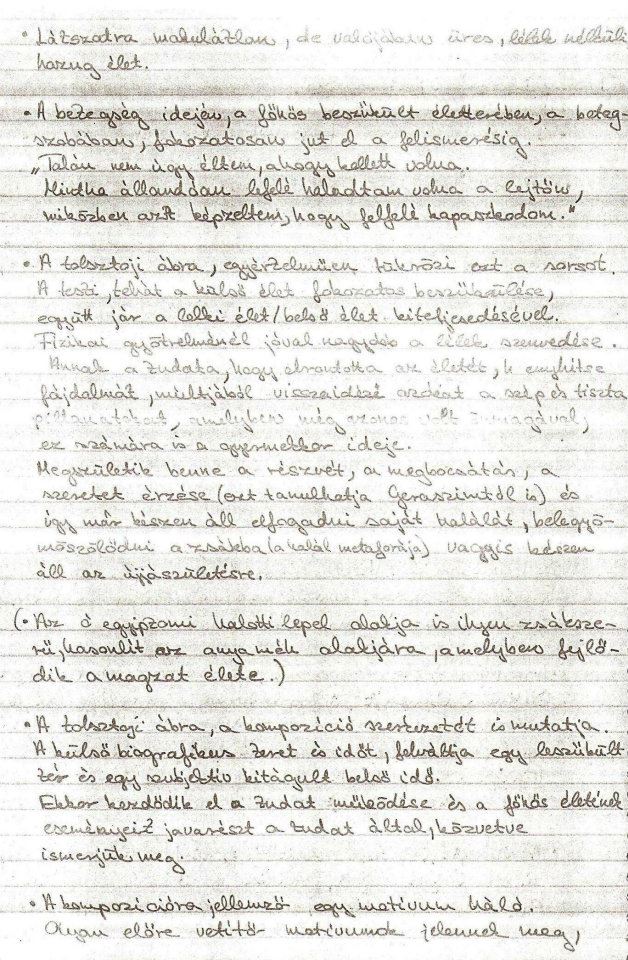 • Látszatra makulátlan, de valójában üres, lélek nélküli
hazug élet.
• A betegség idején, a főhős beszűkült életterében, a beteg-
szobában, fokozatosan jut el a felismerésig.
„Talán nem úgy éltem, ahogy kellett volna.
Mintha állandóan lefelé haladtam volna a lejtőn,
miközben azt képzeltem, hogy felfelé kapaszkodom."
• A tolsztoji ábra, egyértelműen tükrözi ezt a sorsot.
A testi, tehát a külső élet fokozatos beszűkülése,
együtt jár a lelki élet/belső élet kiteljesedésével.
Fizikai gyötrelménél jóval nagyobb a lélek szenvedése.
Annak a tudata, hogy elrontotta az életét, h enyhítse
fájdalmát, múltjából visszaidézi azokat a szép és tiszta
pillanatokat, amelyben még azonos volt önmagával,
ez számára is a gyermekkor ideje.
Megszületik benne a részvét, a megbocsátás, a
szeretet érzése (ezt tanulhatja Geraszimtól is) és
így már készen áll elfogadni saját halálát, belegyö-
möszölődni a zsákba (a halál metaforája) vagyis készen
áll az újjászületésre.
(• Az ó egyiptomi halotti lepel alakja is ilyen zsáksze-
rű, hasonlít az anyaméh alakjára, amelyben fejlő-
dik a magzat élete.)
• A tolsztoji ábra, a kompozíció szerkezetét is mutatja.
A külső biografikus teret és időt, felváltja egy leszűkült
tér és egy szubjektív kitágult belső idő.
Ekkor kezdődik el a tudat működése és a főhős életének
eseményeit javarészt a tudat által, közvetve
ismerjük meg.
• A kompozícióra jellemző egy motívum háló.
Olyan előre vetítő motívumok jelennek meg,